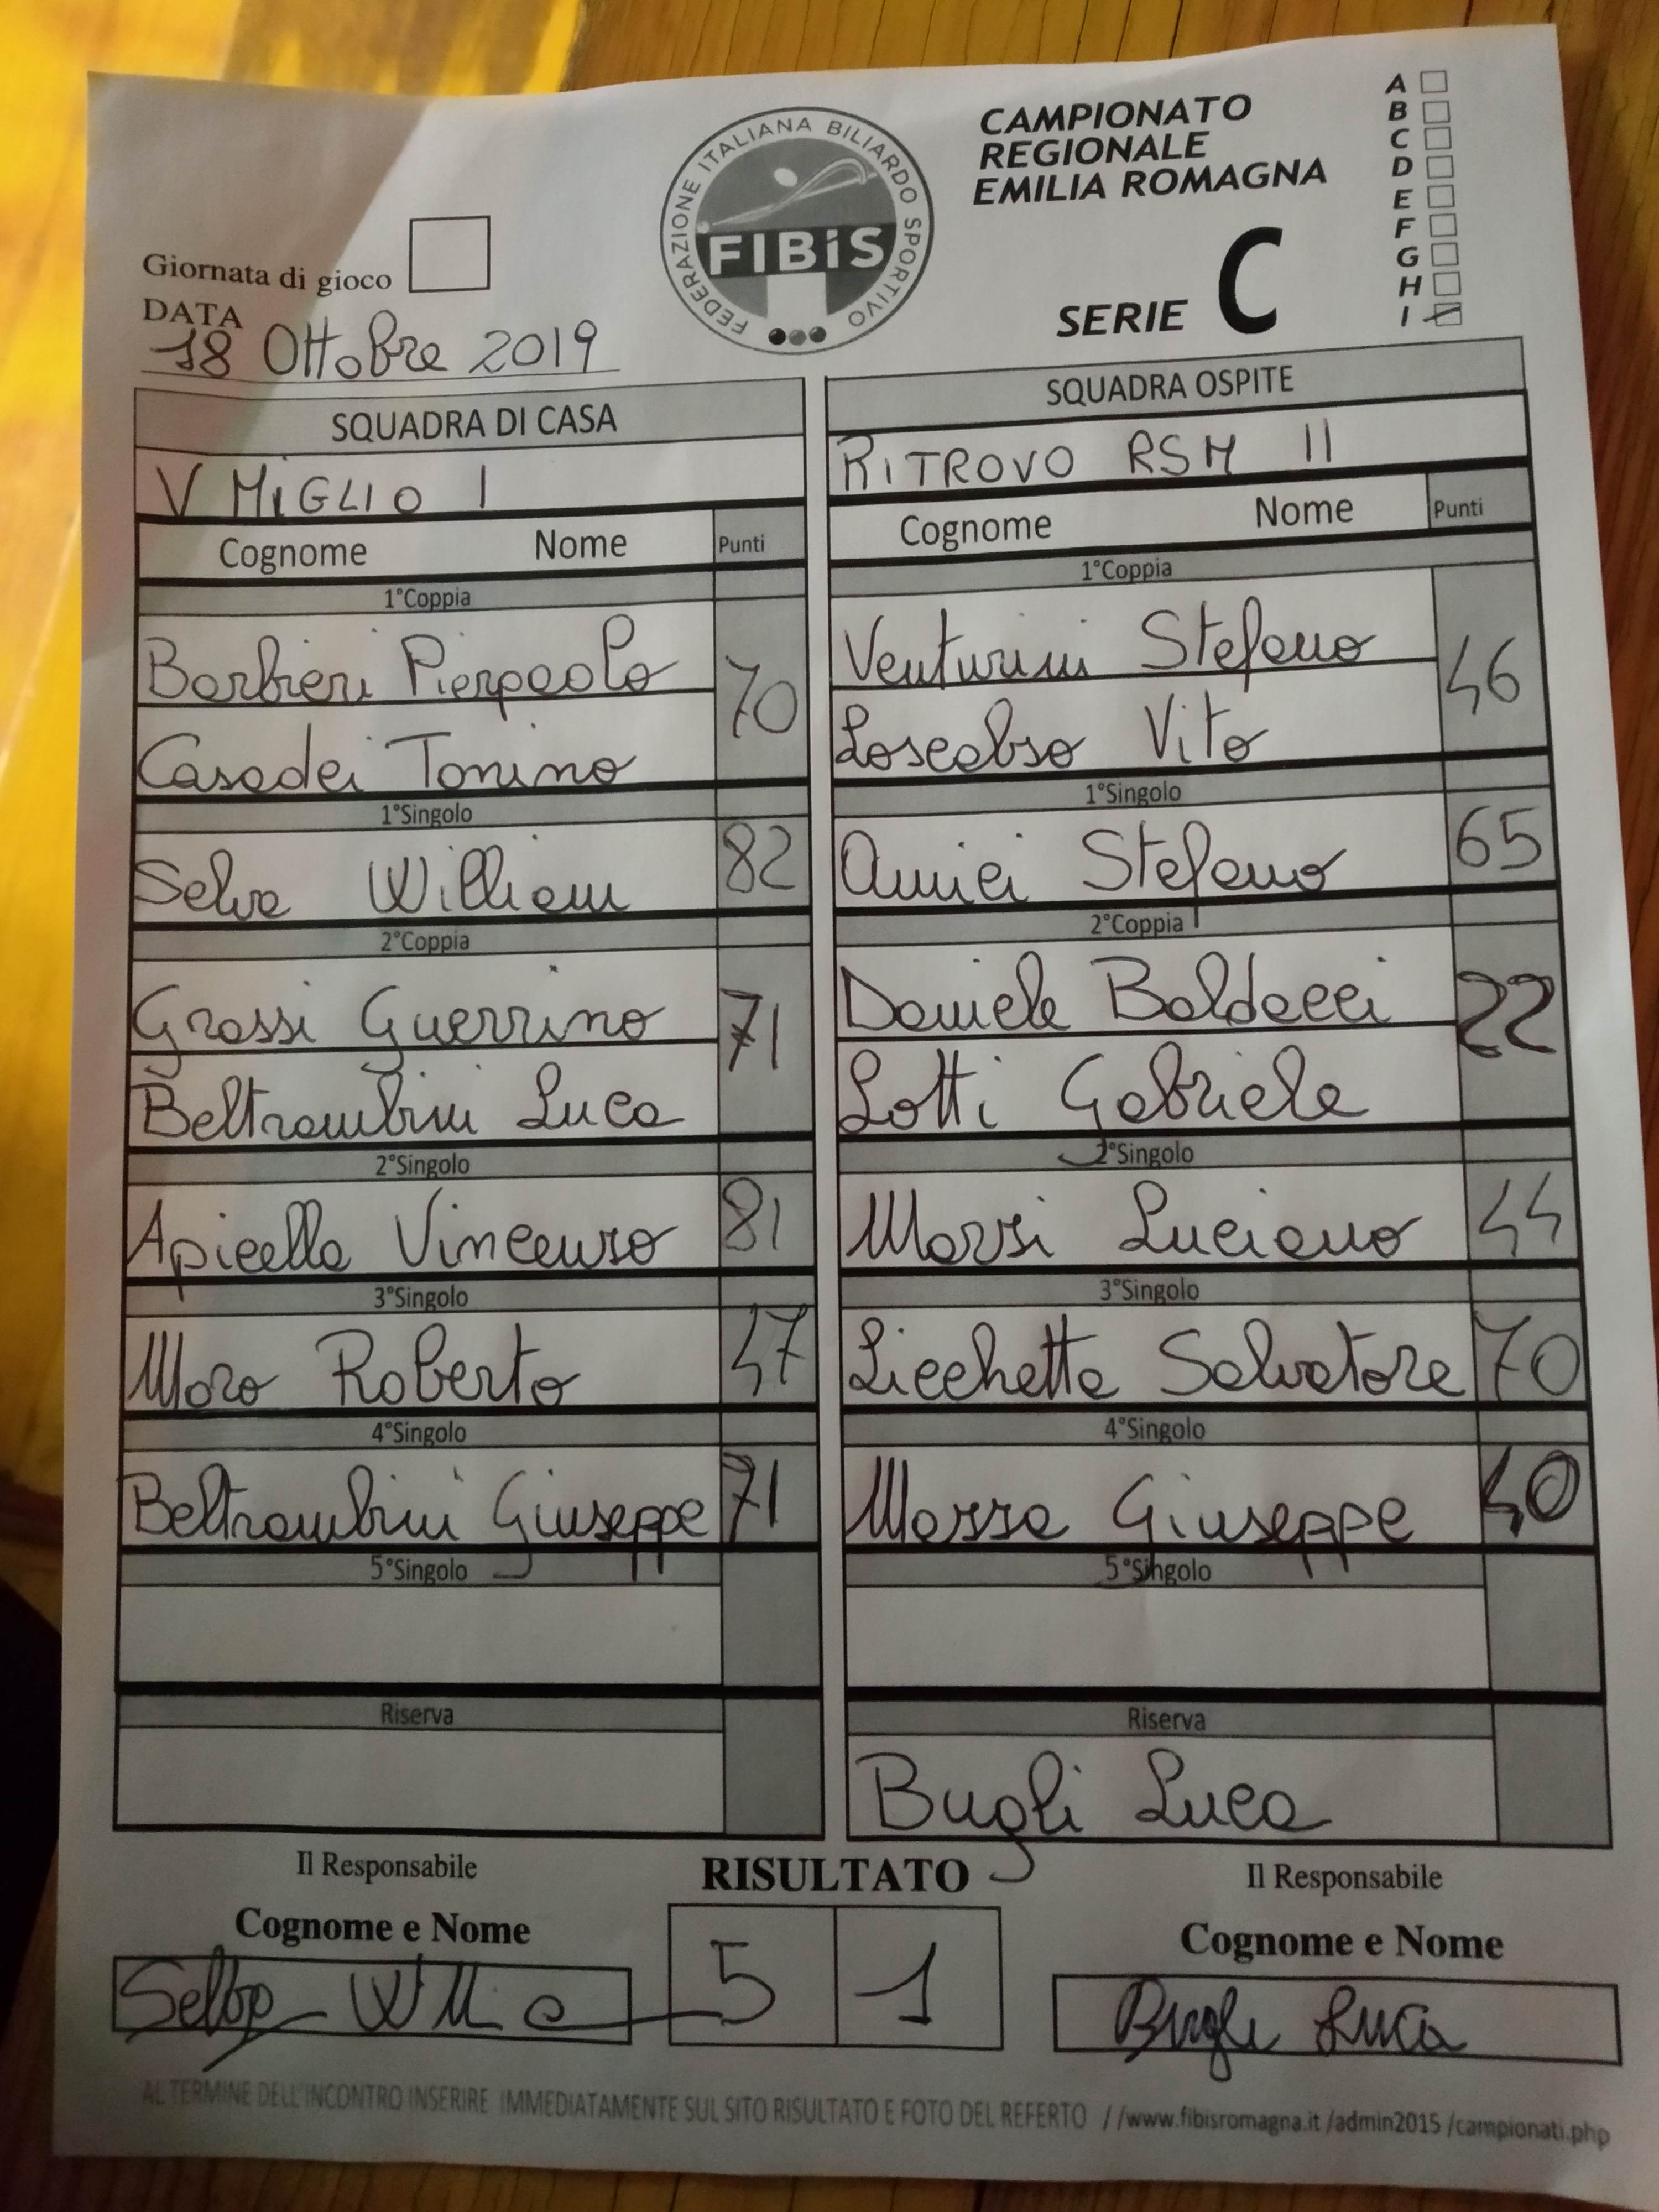 FEDERAZIONE ITALIANA BILIARDO SPORTIVO
FIBiS
CAMPIONATO
REGIONALE
EMILIA ROMAGNA
SERIE C
A
B
C
D
E
F
G
H
I
Giornata di gioco
DATA
18 Ottobre 2019
SQUADRA DI CASA
V MiGLIO I
Cognome Nome Punti
1°Coppia
Barbieri Pierpaolo
70
Casadei Tonino
1°Singolo
Selva William 82
2°Coppia
Grossi Guerrino
71
Beltrambini Luca
2°Singolo
Apicella Vincenzo 81
3°Singolo
Moro Roberto 47
4°Singolo
Beltrambini Giuseppe 71
5°Singolo
Riserva
SQUADRA OSPITE
RiTROVO RSM II
Cognome Nome Punti
1°Coppia
Venturini Stefano
46
Vito
1°Singolo
Amici Stefano 65
2°Coppia
Daniele Baldacci
22
Lotti Gabriele
2°Singolo
Luciano 44
3°Singolo
Licchetta Salvatore 70
4°Singolo
Mazza Giuseppe 40
5°Singolo
Riserva
Bugli Luca
Il Responsabile
Cognome e Nome
RISULTATO
5 1
Il Responsabile
Cognome e Nome
Bugli Luca
AL TERMINE DELL'INCONTRO INSERIRE IMMEDIATAMENTE SUL SITO RISULTATO E FOTO DEL REFERTO //www.fibisromagna.it /admin2015 /campionati.php